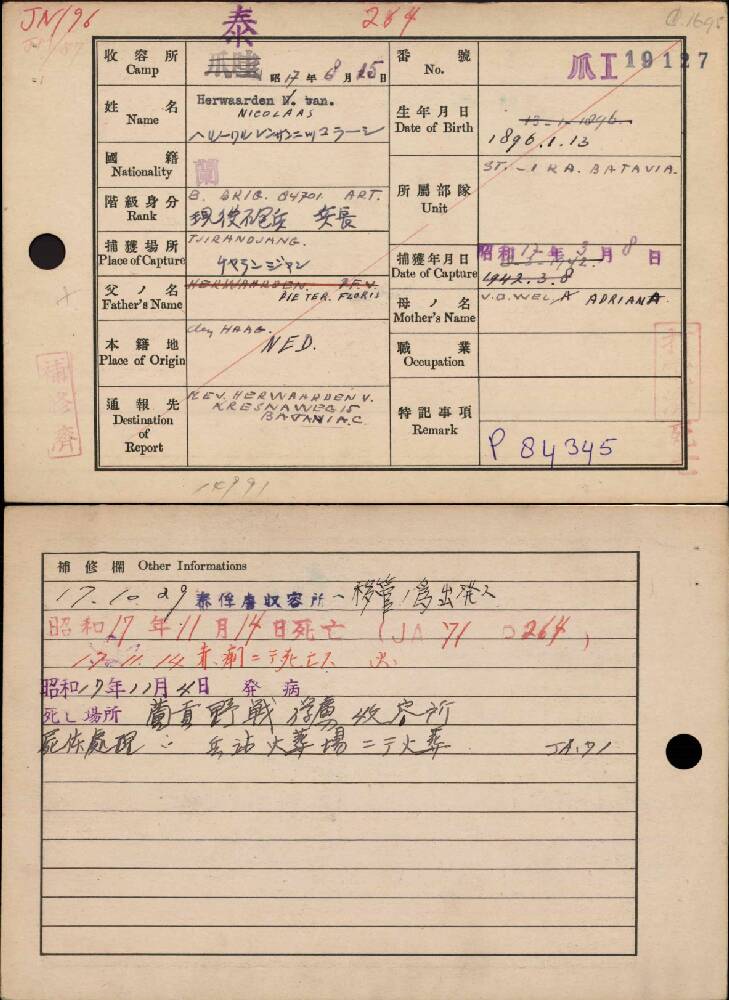 JN/96
264
泰
收容所 Camp
爪哇
昭17年8月15日
番號 No.
爪I 19127
姓名 Name
Herwaarden N. van.
NICOLAAS
生年月日 Date of Birth
13-1-1896
1896.1.13
國籍 Nationality
蘭
階級身分 Rank
B. BRIG. 84701 ART.
現役砲兵 兵長
所屬部隊 Unit
ST. - I RA. BATAVIA.
捕獲場所 Place of Capture
TJIRANDJANG.
チヤランジヤン
捕獲年月日 Date of Capture
昭和17年3月8日
8-3-1942.
1942.3.8
父ノ名 Father's Name
HERWAARDEN. P.F.V.
PIETER. FLORIS
母ノ名 Mother's Name
V.D. WEL, A ADRIANA
本籍地 Place of Origin
den HAAG.
NED.
職業 Occupation
通報先 Destination of Report
MEV. HERWAARDEN V.
KRESNAWEG 15
BATAVIA. C.
特記事項 Remark
P 84345
補修濟
死亡
補修欄 Other Informations
17.10.29 泰俘虜収容所ヘ移管ノ為出発ス
昭和17年11月14日死亡 (JA 71 0264)
17.11.14 赤痢ニテ死亡ス
昭和17年11月4日 発病
死亡場所 蘭貢野戦俘虜收容所
屍体處理ハ 兵站火葬場ニテ火葬 JA.71